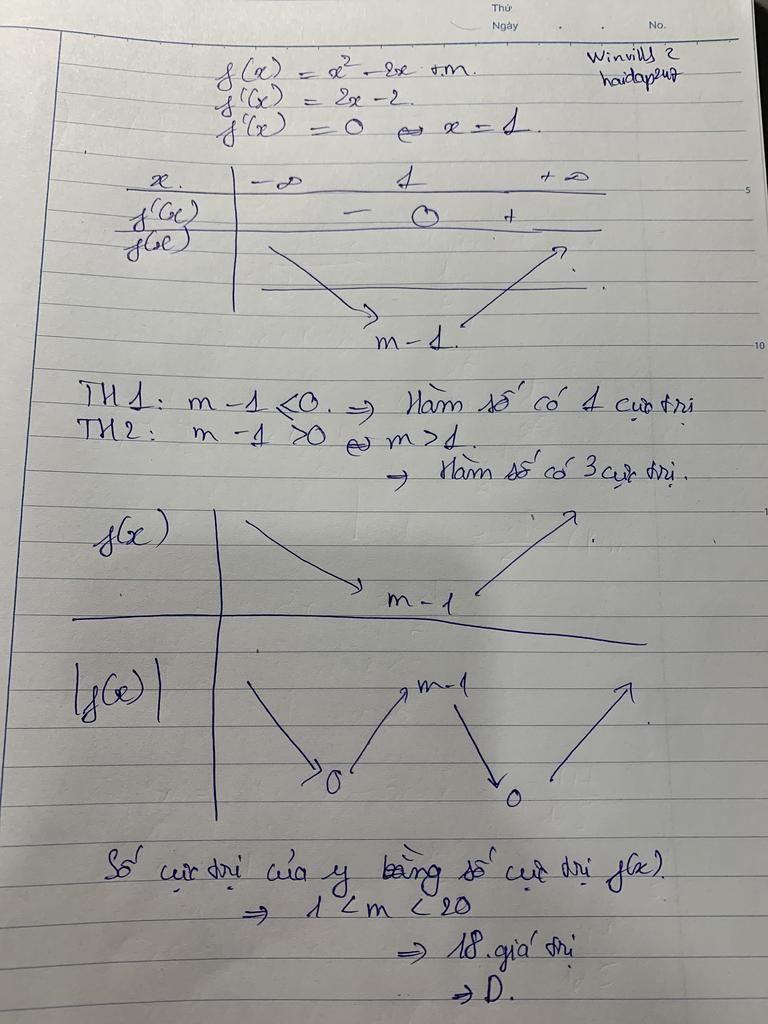 Thứ
Ngày . . No.
Winvills 2
haidap247
f(x) = x² - 2x + m.
f'(x) = 2x - 2.
f'(x) = 0 ⇔ x = 1.
x. -∞ 1 +∞
f'(x) - 0 +
f(x)
m - 1.
5
10
TH1: m - 1 < 0. ⇒ Hàm số có 1 cực trị
TH2: m - 1 > 0 ⇔ m > 1.
⇒ Hàm số có 3 cực trị.
f(x)
m - 1
|f(x)| m - 1
0 0
Số cực trị của y bằng số cực trị f(x).
⇒ 1 < m < 20
⇒ 18. giá trị
⇒ D.